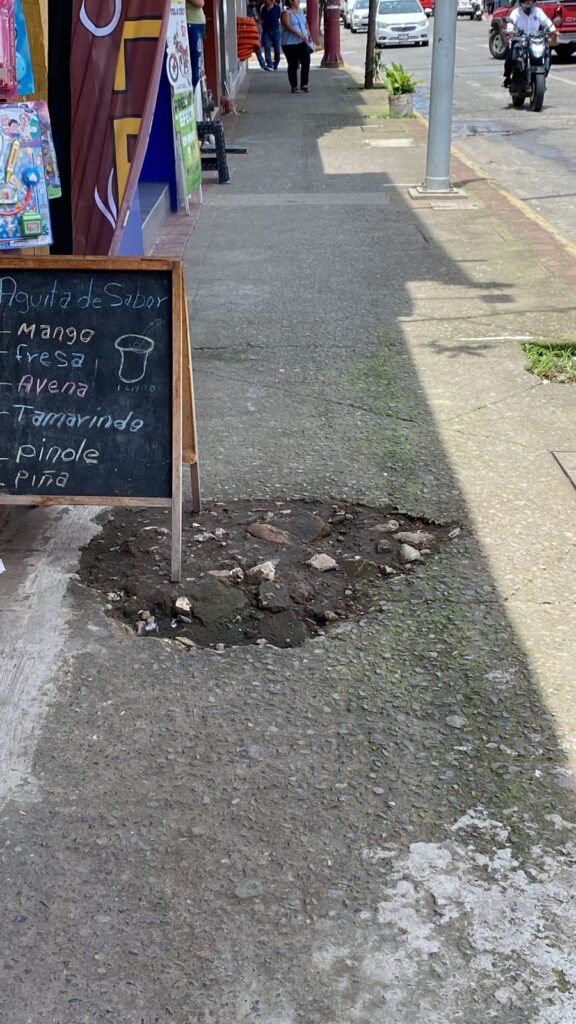 Aguita de Sabor
- Mango
- fresa
- Avena
- Tamarindo
- pinole
- piña